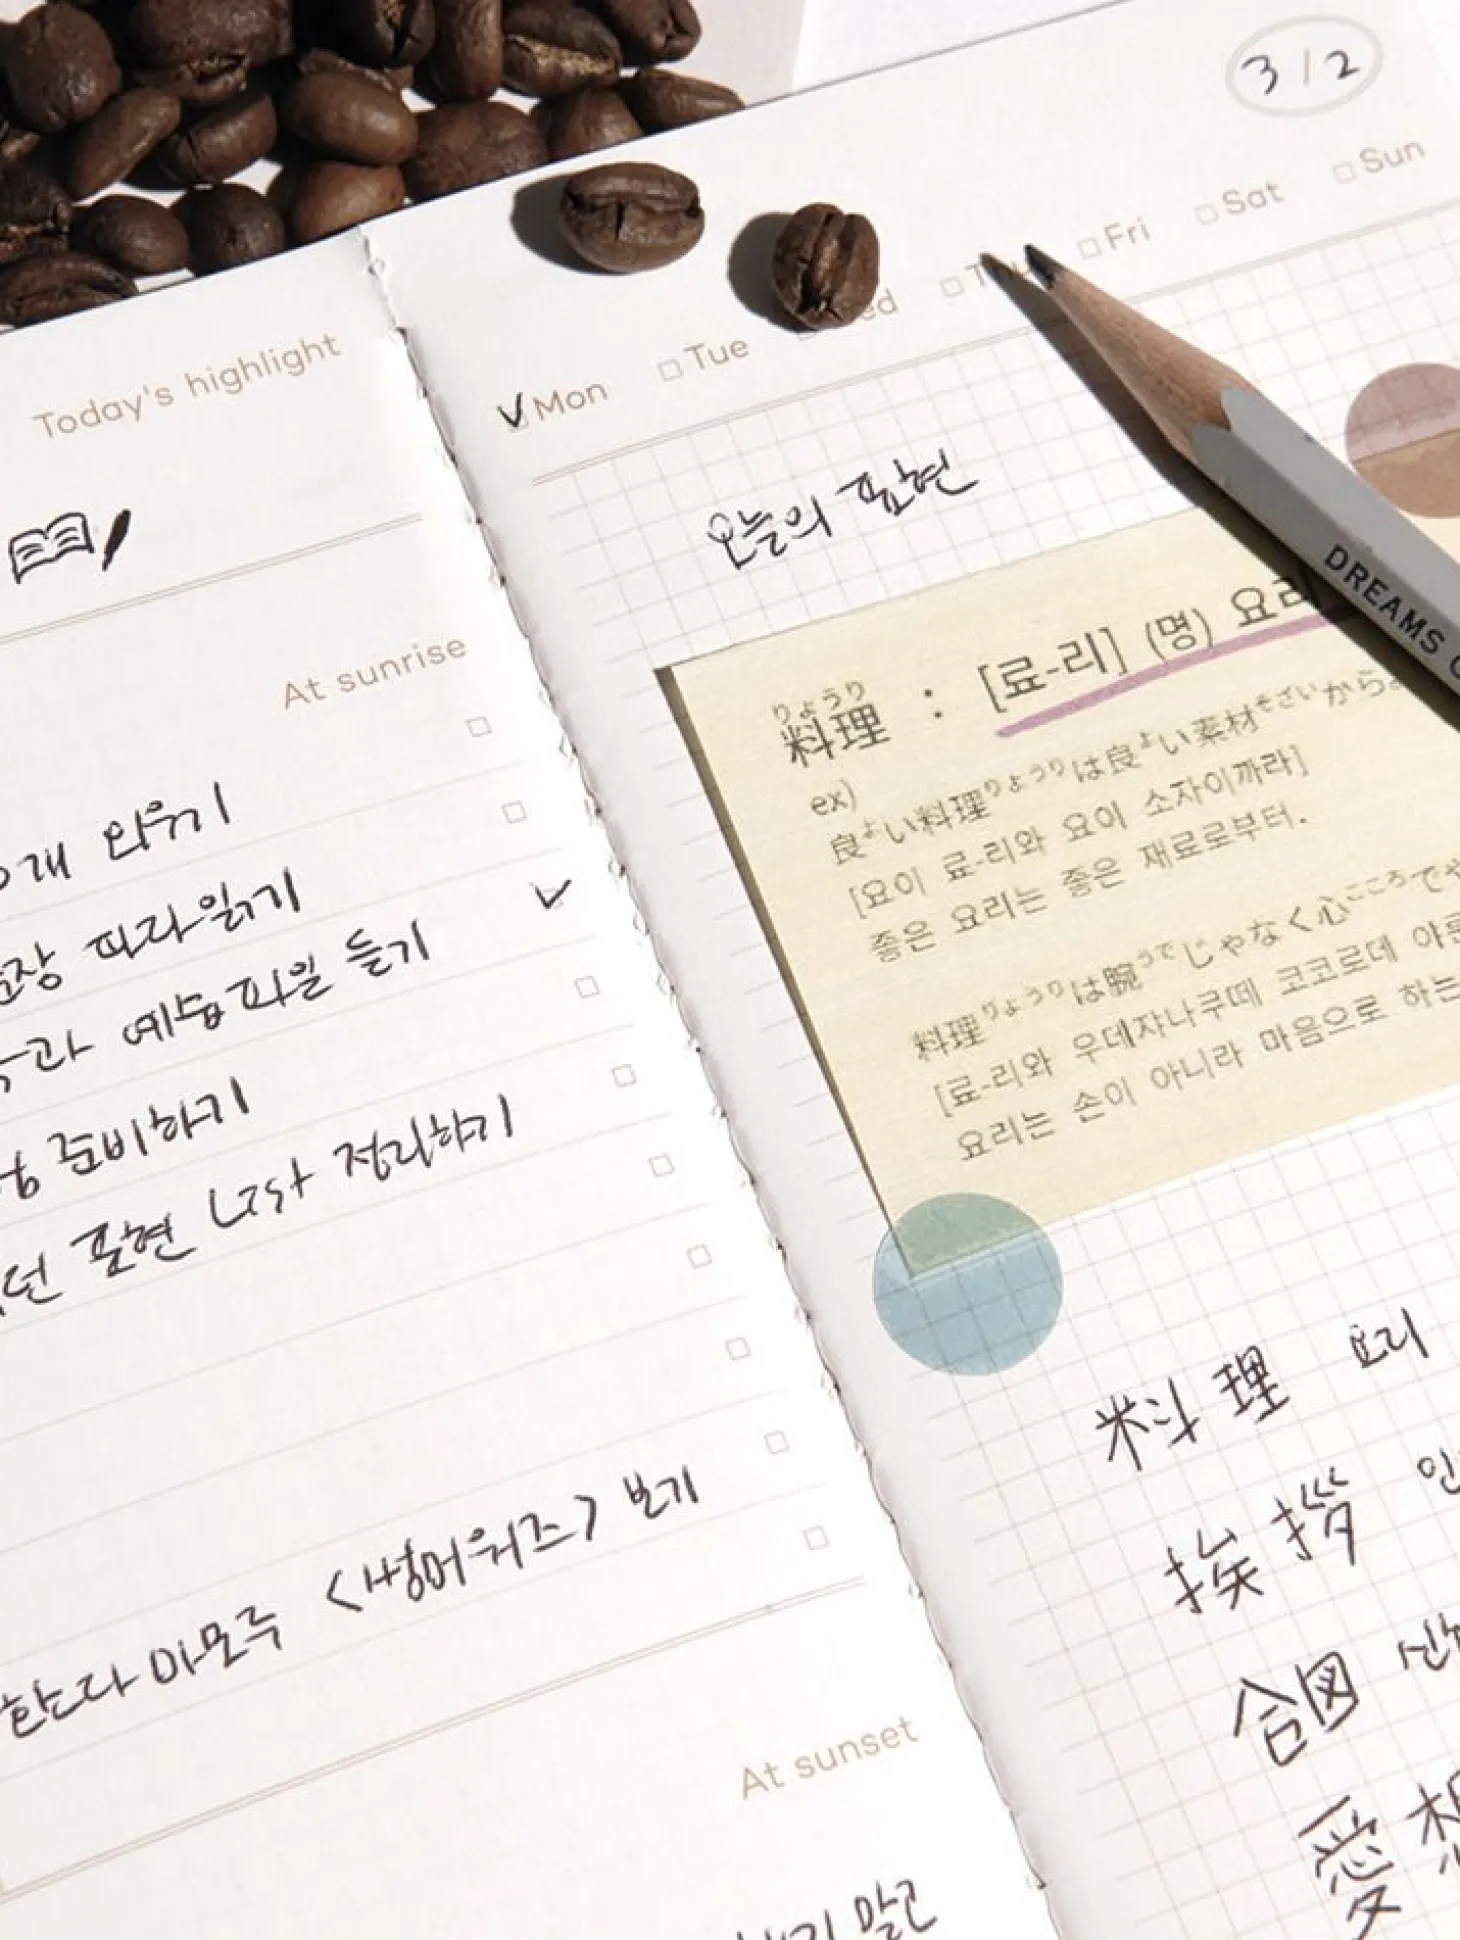 Today's highlight
At sunrise
개 외우기
따라읽기
예습파일 듣기
준비하기
표현 List 정리하기
<썸머워즈> 보기
한다 아모주
At sunset
말고
3/2
Mon Tue Fri Sat Sun
오늘의 표현
DREAMS
りょうり
料理 : [료-리] (명) 요리
ex)
料理りょうりは良よい素材そざいから
良よい料理
[요이 료-리와 요이 소자이까라]
좋은 요리는 좋은 재료로부터.
料理りょうりは腕うでじゃなく心こころで
[료-리와 우데쟈나쿠떼 코코로데
요리는 손이 아니라 마음으로 하는
料理 요리
挨拶
合図
愛想